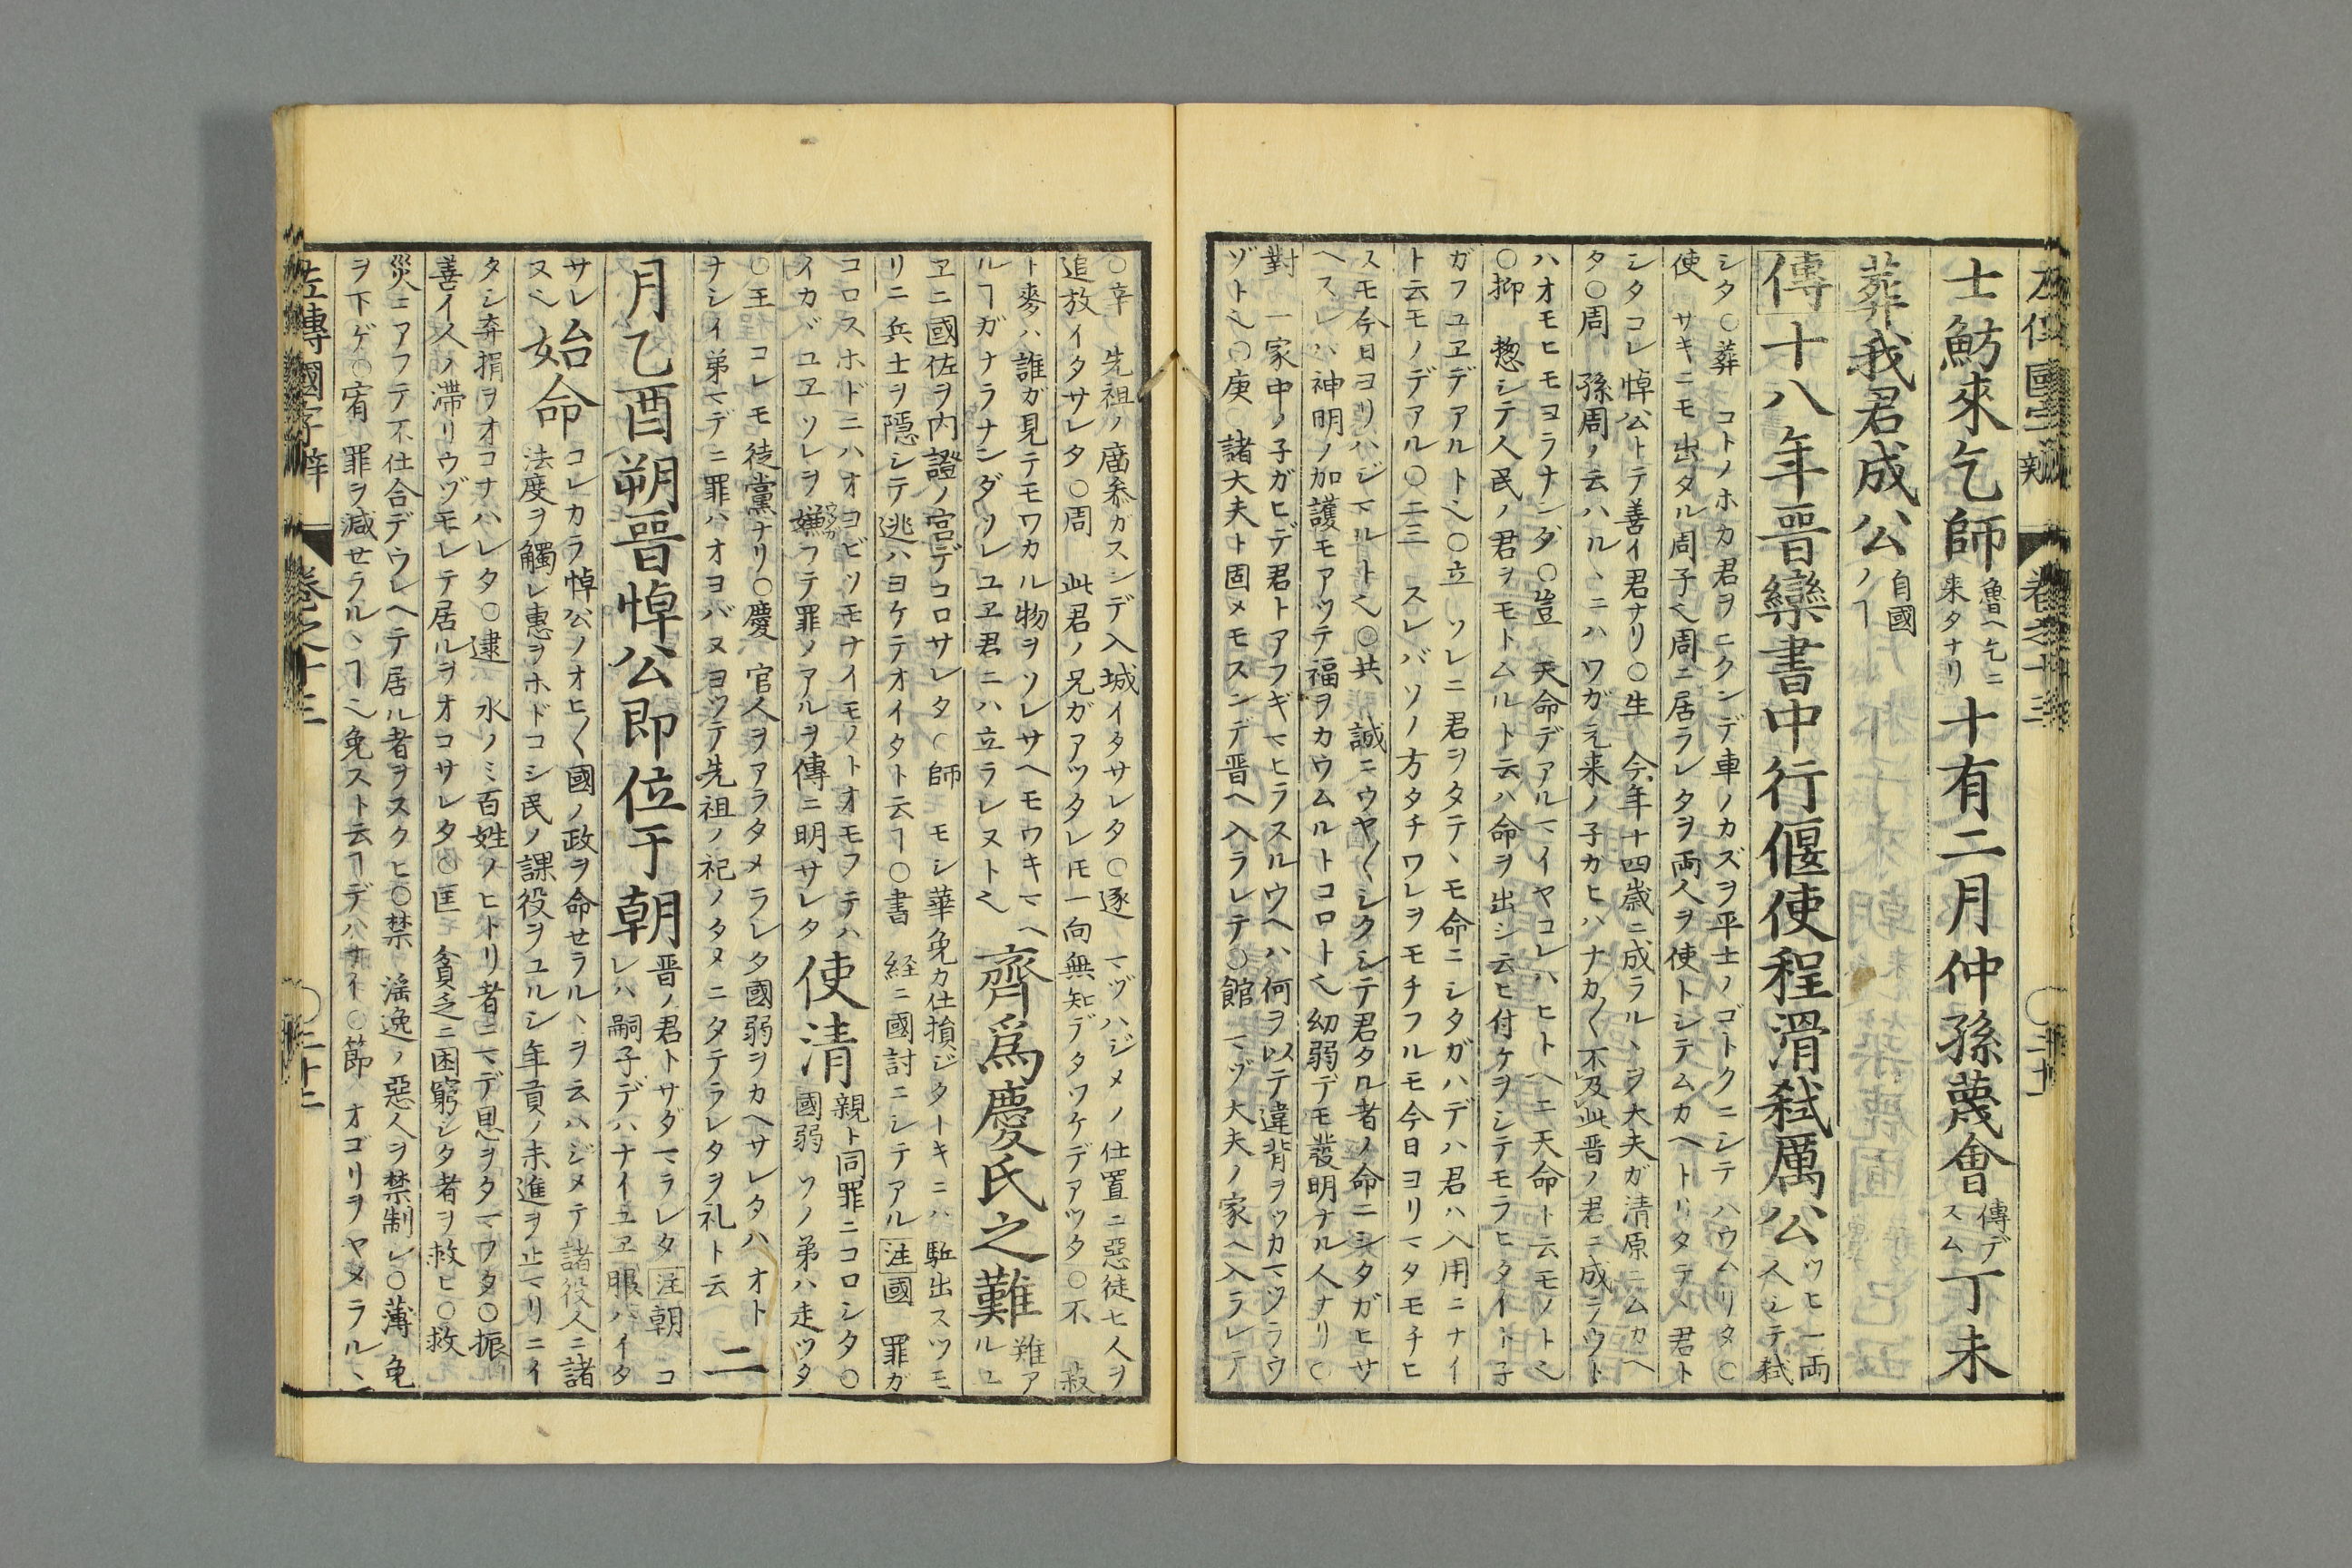 士魴來乞師 魯ヘ乞ニ 来タナリ 十有二月仲孫蔑會 傳デ スム 丁未
葬我君成公 自國 ノヿ
傳十八年晉欒書中行偃使程滑弑厲公 ツヒ一両 人シテ弑
シタ○葬 コトノホカ君ヲニクンデ車ノカズヲ平士ノゴトクニシテハウムリタ○
使 サキニモ出タル周子ヘ周ニ居ラレタヲ両人ヲ使トシテムカヘトリタテヽ君ト
シタコレ悼公トテ善イ君ナリ○生 今年十四歳ニ成ラルヽヲ大夫ガ清原ニムカヘ
タ○周 孫周ノ云ハルヽニハワガ元来ノ子カヒハナカ〱不及此晋ノ君ニ成ラウト
ハオモヒモヨラナンダ○豈 天命デアルマイヤコレハヒトヘニ天命ト云モノトヘ
○抑 惣シテ人民ノ君ヲモトムルト云ハ命ヲ出シ云ヒ付ケヲシテモラヒタイト子
ガフユヱデアルトヘ○立 ソレニ君ヲタテヽモ命ニシタガハデハ君ハ入用ニナイ
ト云モノデアル○二三 スレバソノ方タチワレヲモチフルモ今日ヨリマタモチヒ
スモ今日ヨリハジマルトヘ○共 誠ニウヤ〱シクシテ君タル者ノ命ニシタガヒサ
ヘスレバ神明ノ加護モアツテ福ヲカウムルトコロトヘ幼弱デモ發明ナル人ナリ○
對 一家中ノ子ガヒデ君トアフギマヒラスルウヘハ何ヲ以テ違背ヲツカマツラウ
ヅトヘ○庚 諸大夫ト固メモスンデ晋ヘ入ラレテ○館 マヅ大夫ノ家ヘ入ラレテ
○辛 先祖ノ廟参ガスンデ入城イタサレタ○逐 マヅハジメノ仕置ニ惡徒七人ヲ
追放イタサレタ○周 此君ノ兄ガアツタレ𪜈一向無知デタワケデアツタ○不 菽
ト麥ハ誰ガ見テモワカル物ヲソレサヘモワキマヘ
ルヿガナラナンダソレユヱ君ニハ立ラレヌトヘ 齊爲慶氏之難 難ア ルユ
ヱニ國佐ヲ内證ノ宮デコロサレタ○師 モシ華免カ仕損ジタトキニハ駈出スツモ
リニ兵士ヲ隠シテ逃ハヨケテオイタト云ヿ○書 経ニ國討ニシテアル注國 罪ガ
コロスホドニハオヨビソモナイモノトオモフテハ
イカヾユヱソレヲ嫌フテ罪ノアルヲ傳ニ明サレタ 使清 親ト同罪ニコロシタ○ 國弱 ソノ弟ハ走ツタ
○王 コレモ徒黨ナリ○慶 官人ヲアラタメラレタ國弱ヲカヘサレタハオト
ナシイ弟マデニ罪ハオヨバヌヨツテ先祖ノ祀ノタメニタテラレタヲ礼ト云 二
月乙酉朔晉悼公即位于朝 晋ノ君トサダマラレタ注朝 コ レハ嗣子デハナイユヱ服ハイタ
サレ
ヌヘ 始命 コレカラ悼公ノオヒ〱國ノ政ヲ命セラルヽヲ云ハジメテ諸役人ニ諸 法度ヲ觸レ惠ヲホドコシ民ノ課役ヲユルシ年貢ノ未進ヲ止マリニイ
タシ弃捐ヲオコナハレタ○逮 水ノミ百姓ノヒトリ者ニマデ恩ヲタマフタ○振
善イ人ノ滞リウヅモレテ居ルヲオコサレタ○匡 貧乏ニ困窮シタ者ヲ救ヒ○救
災ニアフテ不仕合デウレヘテ居ル者ヲスクヒ○禁 滛逸ノ惡人ヲ禁制シ○薄 免
ヲ下ゲ○宥 罪ヲ減セラルヽヿヘ免スト云ヿデハナイ○節 オゴリヲヤメラルヽ
左傳國字辯 卷之十三 ○三十二